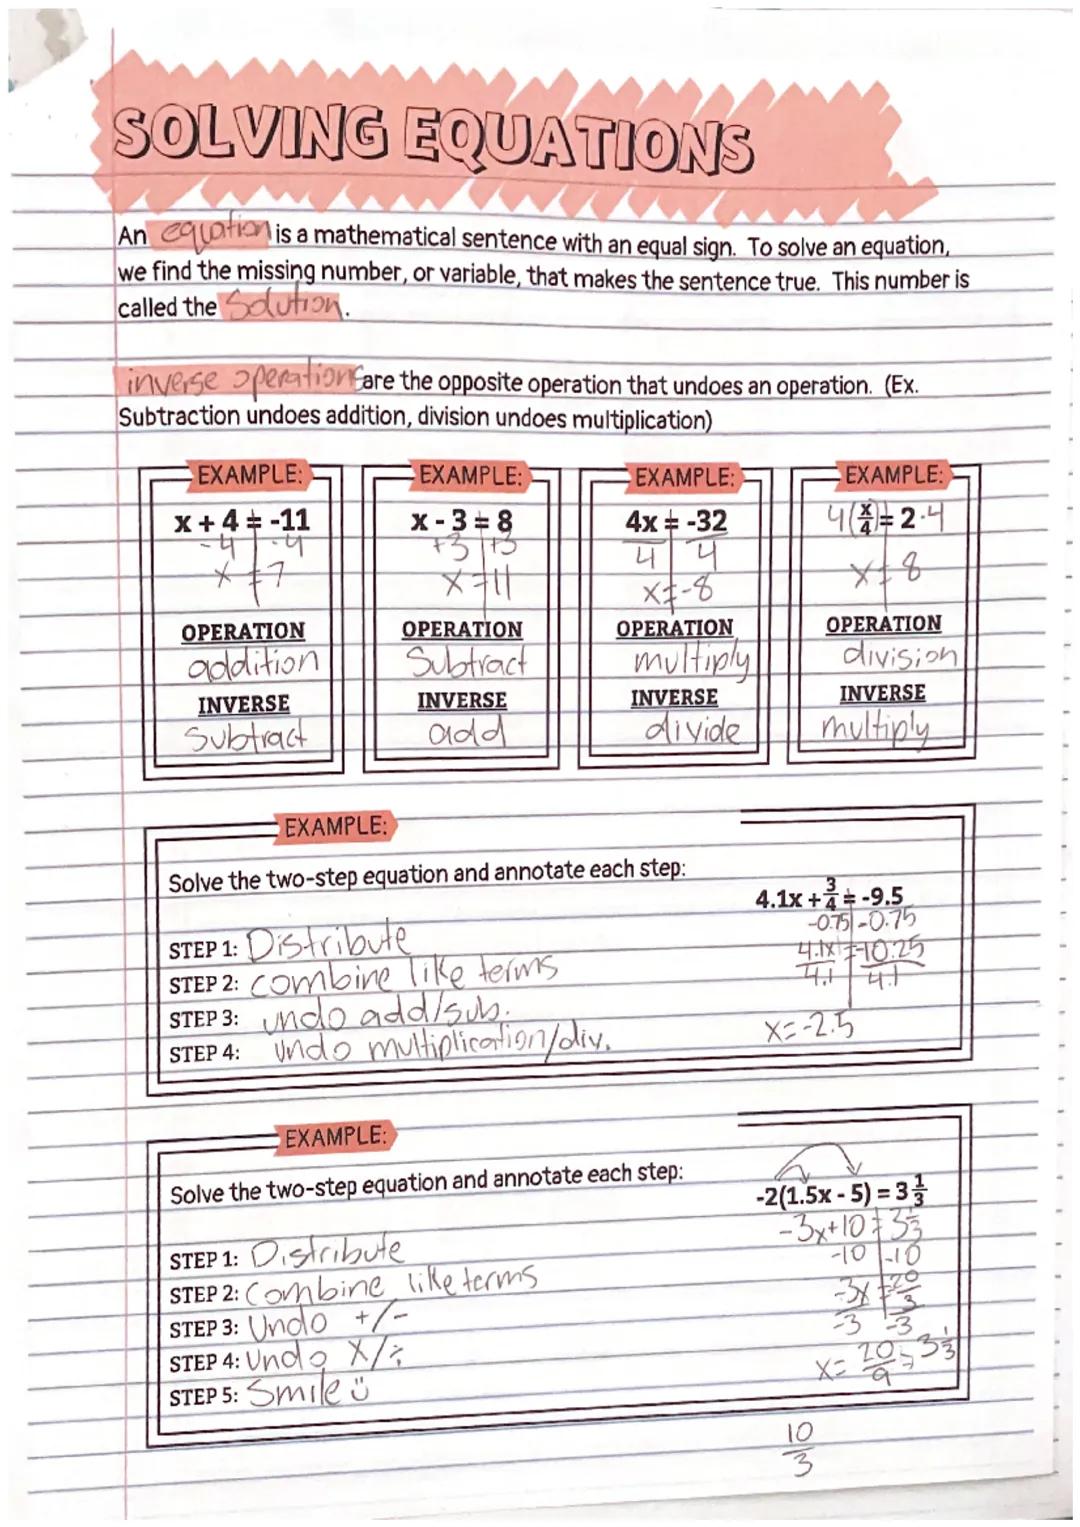 SOLVING EQUATIONS
An equation is a mathematical sentence with an equal sign. To solve an equation,
we find the missing number, or variable, that makes the sentence true. This number is
called the Solution.
inverse operations are the opposite operation that undoes an operation. (Ex.
Subtraction undoes addition, division undoes multiplication)
EXAMPLE:
x + 4 = -11
-4 -4
x = 7
OPERATION
addition
INVERSE
Subtract
EXAMPLE:
x - 3 = 8
+3 +3
x = 11
OPERATION
Subtract
INVERSE
add
EXAMPLE:
4x = -32
4 4
x = -8
OPERATION
multiply
INVERSE
divide
EXAMPLE:
4(x/4) = 2·4
x = 8
OPERATION
division
INVERSE
multiply
EXAMPLE:
Solve the two-step equation and annotate each step:
STEP 1: Distribute
STEP 2: combine like terms
STEP 3: undo add/sub.
STEP 4: undo multiplication/div.
4.1x + 3/4 = -9.5
-0.75 -0.75
4.1x = -10.25
4.1 4.1
x = -2.5
EXAMPLE:
Solve the two-step equation and annotate each step:
STEP 1: Distribute
STEP 2: Combine like terms
STEP 3: Undo +/-
STEP 4: Undo x/÷
STEP 5: Smile ü
-2(1.5x - 5) = 3 1/3
-3x+10 = 3 1/3
-10 -10
-3x = 20/3
-3 -3
x = 20/9 = 3 1/3
10/3